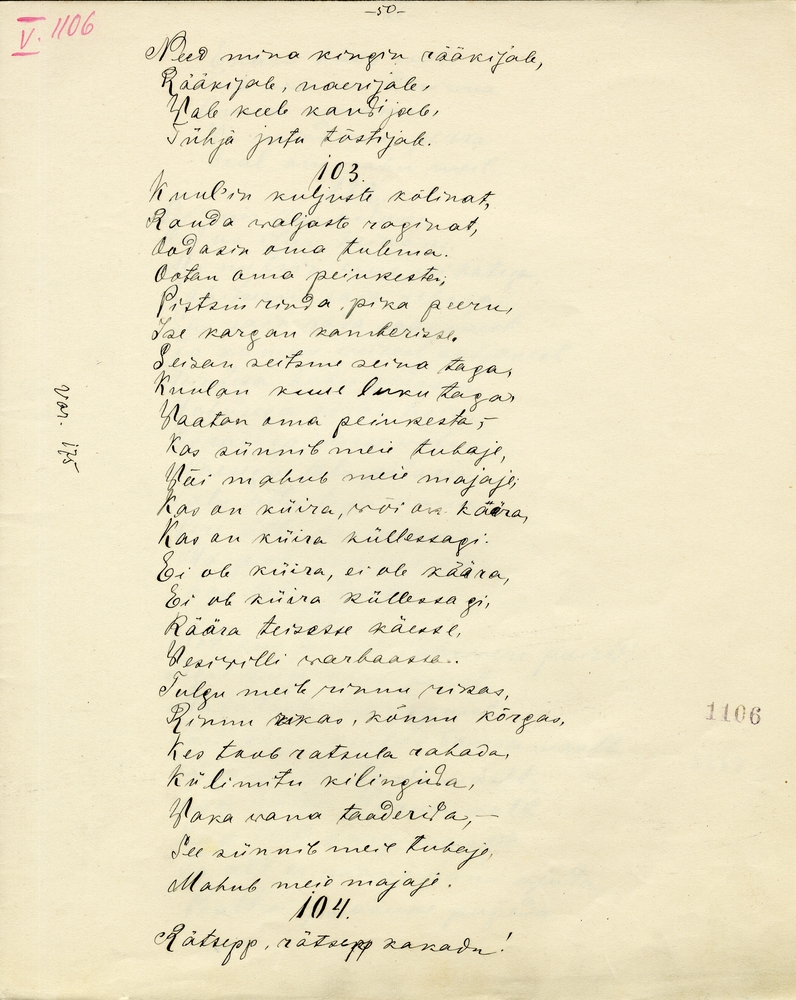 -50-
V. 1106
Need mina kingin rääkijale,
Rääkijale, naerijale,
Wale keele kandijale,
Tühja jutu tõstijale.
103.
Kuul'in kuljuste kõlinat,
Randa waljaste raginat,
Oodasin oma tulema.
Ootan oma peiukesta;
Pistsin rinda pika peeru,
Ise kargan kamberisse.
Seisan seitsme seina taga,
Kuulan kuue luku taga,
Waatan oma peiukesta, -
Kas sünnib meie tubaje,
Wäi mahub meie majaje;
Kas on küira, wõi on käära,
Kas on küira küllessagi.
Ei ole küira, ei ole käära,
Ei ole küira küllessagi,
Käära teisesse käesse,
Wesiwilli warbaassa..
Tulgu meile rinnu rikas,
Rinnu rikas, kõnnu kõrgas,
Kes toob ratsula rahada,
Külimitu kilingida,
Waka wana taaderida, -
See sünnib meie tubaje,
Mahub meie majaje.
104.
Rätsepp, rätsepp kakadu!
Var. 175
1106